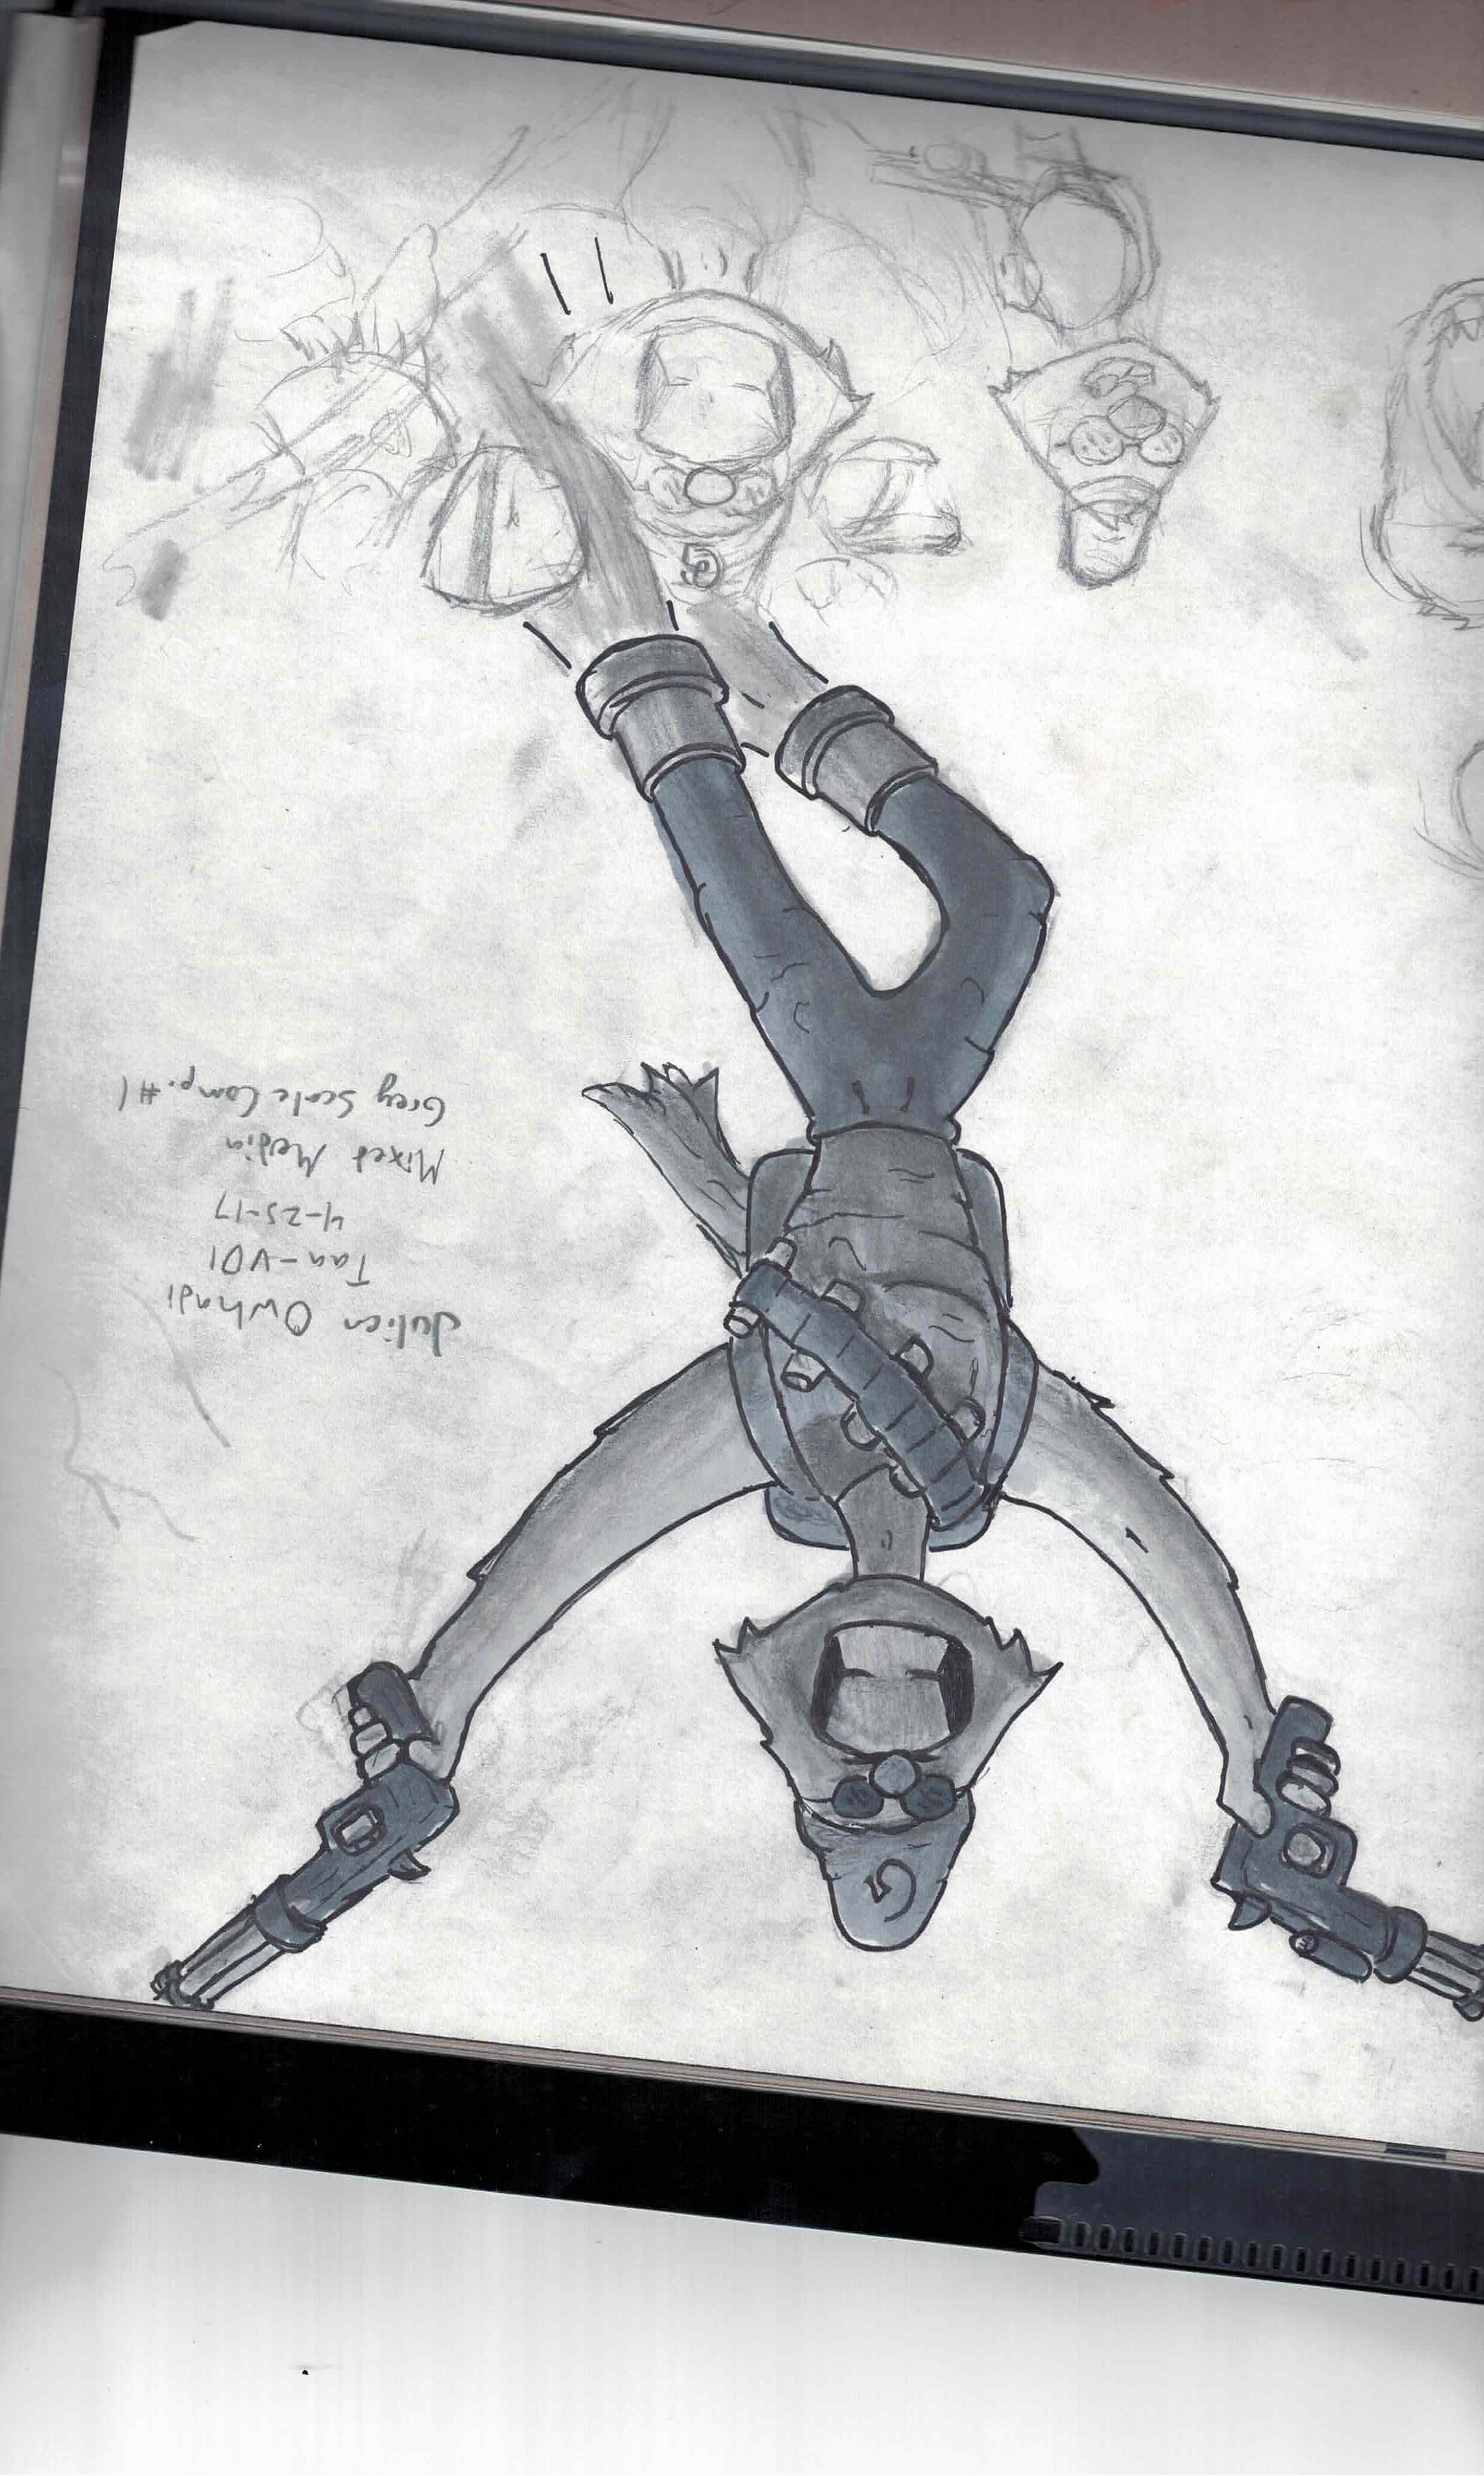 Julien Owhadi
Tan-VD1
4-25-17
Mixed Media
Grey Scale Comp. #1